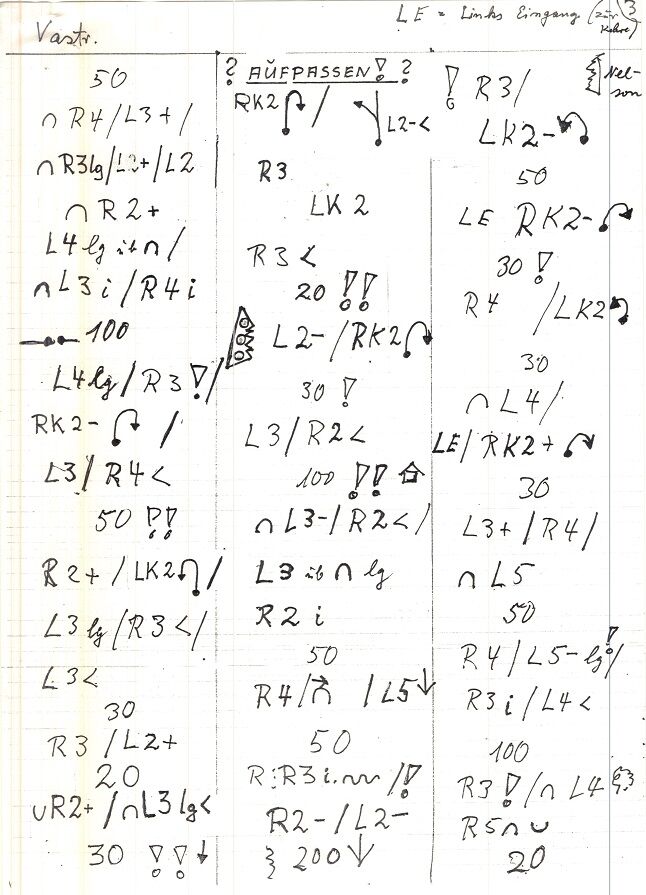 Vastr.
LE = Links Eingang (zur Kehre) 3
50
∩ R4/L3+/
∩ R3lg/L2+/L2
∩ R2+
L4 lg üb ∩/
∩ L3 i/R4 i
100
L4lg/R3!/
RK2- /
L3/R4<
50 !!
R2+/LK2 /
L3 lg/R3</
L3<
30
R3/L2+
20
∪R2+/∩L3 lg<
30 !! ↓
? AUFPASSEN! ?
RK2 / L2-<
R3
LK2
R3<
20 !!
L2-/RK2
30 !
L3/R2<
100 !!
∩ L3-/R2</
L3 üb ∩ lg
R2 i
50
R4/∩ /L5↓
50
R3 i /!
R2-/L2-
200↓
! R3/
Nel-
son
LK2-
50
LE RK2-
30 !
R4 /LK2
30
∩ L4/
LE/RK2+
30
L3+/R4/
∩ L5
50
R4/L5- lg!/
R3 i/L4<
100
R3!/∩ L4
R5 ∩ ∪
20